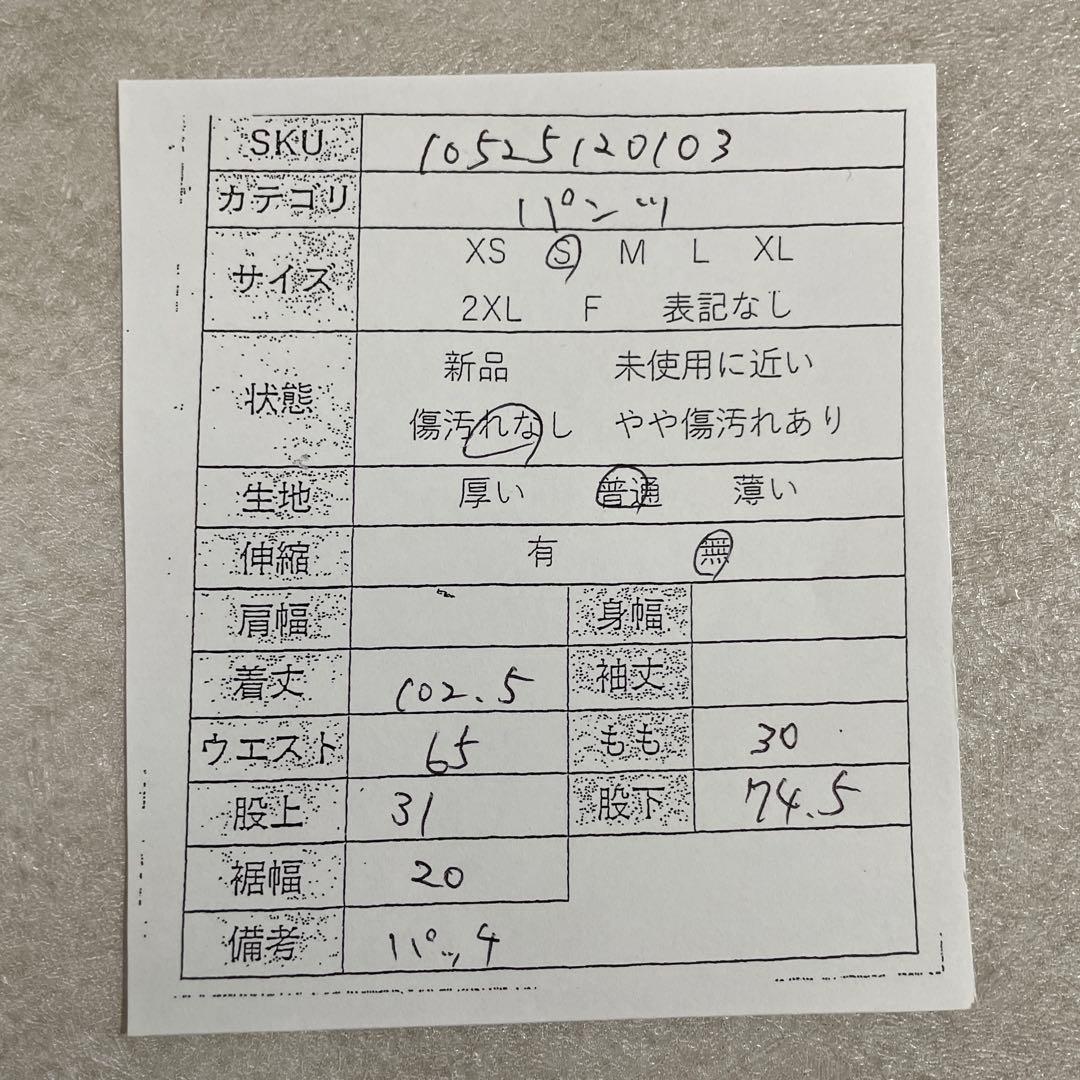 SKU 10525120103
カテゴリ パンツ
サイズ XS S M L XL
2XL F 表記なし
状態 新品 未使用に近い
傷汚れなし やや傷汚れあり
生地 厚い 普通 薄い
伸縮 有 無
肩幅 身幅
着丈 102.5 袖丈
ウエスト 65 もも 30
股上 31 股下 74.5
裾幅 20
備考 パッチ